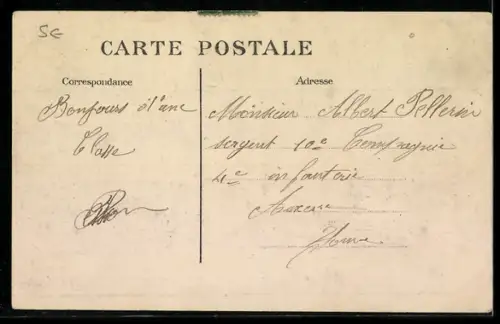 5€
CARTE POSTALE
Correspondance
Bonjours
Classe
Adresse
Monsieur Albert Pellerin
sergent 10e Compagnie
4e infanterie
Auxerre
Yonne